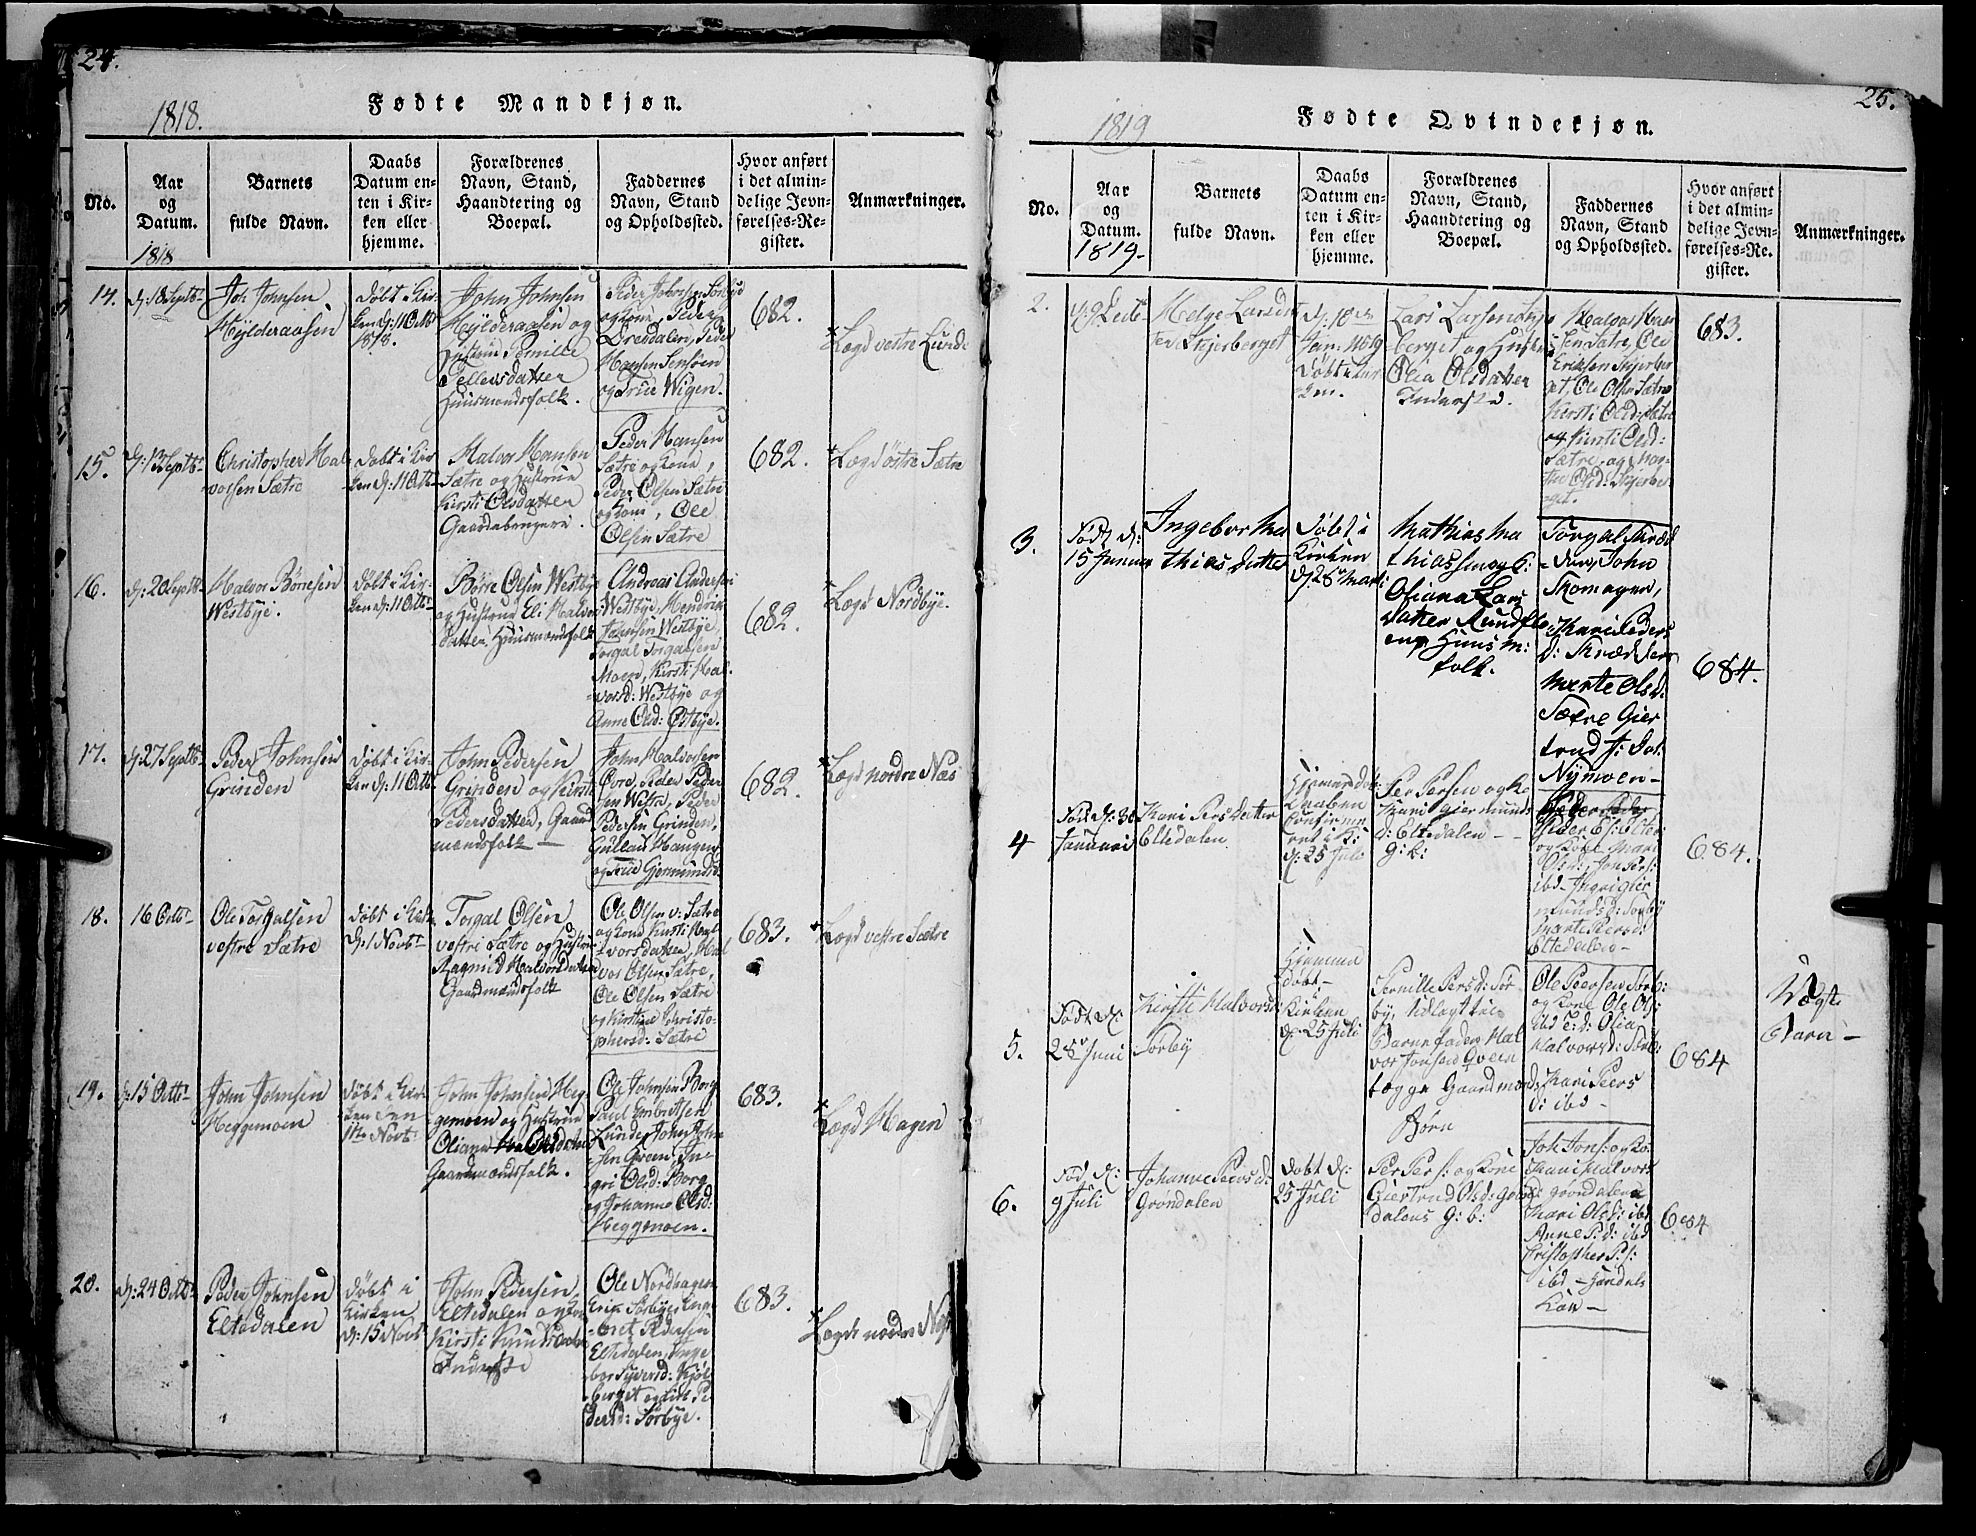 24.
1818.
Fødte Mandkjøn.
No.
Aar
og
Datum.
1818
Barnets
fulde Navn.
Daabs
Datum en-
ten i Kir-
ken eller
hjemme.
Forældrenes
Navn, Stand,
Haandtering og
Boepæl.
Faddernes
Navn, Stand
og Opholdssted.
Hvor anført
i det almin-
delige Jevn-
førelses-Re-
gister.
Anmærkninger.
14.
d: 18 Septb
Joh Johnsen
Hylderaasen
døbt i Kir-
ken d: 11 Octb
1818.
John Johnsen
Hylderaasen og
Hustrue Pernille
Huusmandsfolk.
og Kone, Peder
Dresdalen, Peder
Hansen
682.
Lægd vestre Lunde
15.
d: 13 Septb
Christopher Hal
vorsen Sætre
Døbt i Kir
ken d: 11 Octb
Halvor Hansen
Sætre og Hustrue
Kirsti Olsdatter
Gaardabrugere.
Peder Hansen
Sætre og Kone,
Peder Olsen Sætre
og Kone, Ole
Olsen Sætre
682.
Lægd østre Sætre
16.
d: 20 Septb
Halvor Børresen
Westbye.
Døbt i Kir-
ken d: 11 Octb
Børre Olsen Westbye
og Hustrue Eli Halvor
datter Huusmandsfolk
Andreas Andersen
Westbye, Hendrik
Johnsen Westbye,
Torgal Torgalsen
Moen, Kirsti Hal-
vorsd: Westbye og
Anne Olsd: Østbye.
682.
Lægd Nordbye.
17.
d: 27 Septb
Peder Johnsen
Grinden
døbt i Kir-
ken d: 11 Octb
John Pedersen
Grinden og Kirsti
Pedersdatter, Gaard
mandsfolk —
John Halvorsen
Øvre, Peder Peder
sen Westre, Peder
Pedersen Grinden,
Gullau Haugen
og Siri Gjermundsd
682.
Lægd nordre Næs
18.
16 Octb
Ole Torgalsen
vestre Sætre
døbt i Kirk
d: 1 Novb
Torgal Olsen
vestre Sætre og Hustrue
Ragnild Halvorsdatter
Gaardmandsfolk
Ole Olsen v: Sætre
og Kone Kirsti Hal
vorsdatter, Hal
vor Olsen Sætre,
Ole Olsen Sætre
og Kirstine Christo-
phersd: Sætre
683.
Lægd vestre Sætre
19.
d: 15 Octb
John Johnsen
Heggemoen
døbt i Kir-
ken den
1te Novb
John Johnsen Heg
gemoen og Hustrue
Oliane Olsdatter
Gaardmandsfolk.
Ole Johnsen Borg
Paul Embretsen
Lunde, John John
sen Qveen, In-
gri Olsd: Borg
og Johanne Olsd:
Heggemoen.
683.
Lægd Hagen
20.
d: 24 Octb
Peder Johnsen
Eltedalen
døbt i
Kirken
d: 15 Novb
John Pedersen
Eltedalen og Kone
Kirsti Knudsdatter
Inderste
Ole Nordhagen
Erik Sørbye, Enge-
bret Pedersen
Eltedalen, Inge
bor Syversd: Kjøl
berget og Pe
dersd: Sørbye.
683.
Lægd nordre Næs
25.
1819
Fødte Qvindekjøn.
No.
Aar
og
Datum.
1819.
Barnets
fulde Navn.
Daabs
Datum en-
ten i Kir-
ken eller
hjemme.
Forældrenes
Navn, Stand,
Haandtering og
Boepæl.
Faddernes
Navn, Stand
og Opholdssted.
Hvor anført
i det almin-
delige Jevn-
førelses-Re-
gister.
Anmærkninger.
2.
Helge Larsdat
ter Skjerberget
Døbt i Kir
ken.
Lars Larsen Skjer
berget og Hustrue
Olia Olsdatter
Inderste.
Halvor Han
sen Sætre, Ole
Eriksen Skjerber
get, Ole Olsen Sætre
Kirsti Olsd: Sætre
og Kirsti Olsd:
Sætre og Mar-
the Olsd: Skjerber
get.
683.
3.
Født d:
15 Januar
Ingebor Ma
thias datter
Døbt i
Kirken
d: 28 Marti
Mathias Ma
thiassen og K:
Oliana Lars
datter Rundflo
eng Huusm:
folk.
Torgal Skræd
der, John
Skomager,
Kari Peders
d: Skrædder
Merte Olsd:
Sætre Gier
trud J: Dat.
Nymoen —
684.
4
Fød d: 30
Januari
Kari Pers datter
Eltedalen
Hjemmedøbt
d: 25 Juli
Per Persen og Ko
Kari Giermunds
d: Eltedalen —
G: b:
Peder
og Kone Mari
Olsd: Jon Pers:
ibd — Kari Gier
munds d: Sørby
Merte Persd
Eltedalen —
684.
5.
Født d:
28 Juni
Kirsti Halvorsd:
Sørby
Hjemme
døbt —
Kirken
d: 25 Juli
Pernille Persd: Sør
by, Udlagt til
Barnefader Hal
vor Jonsen Qveen
begge Gaardmands
Børn
Ole Peersen Sørb:
og Kone Ole Ols:
ibd Olia
Halvorsd: Sørb:
Kari Peers
d: ibd —
684
Uægte
Barn —
6.
Fød d:
9 Juli
Johanne Peers d:
Grøndalen
Døbt d:
25 Juli
Per Pers: og Kone
Giertrud Olsd: Grøn
dalens G: b:
Joh Jons: og Ko:
Kari Halvors
d: Grøndalen
Kari Olsd: ibd
Anne P: d: ibd
Cristopher P: s:
ibd —
Kar —
684